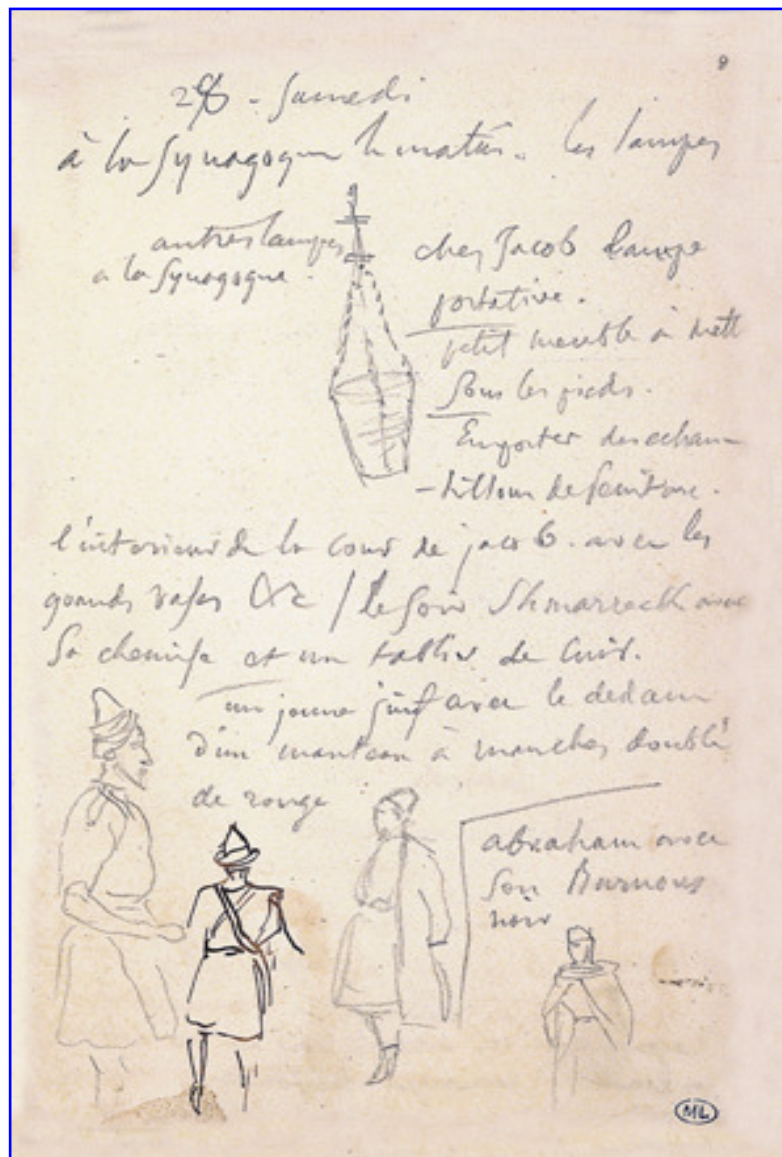 8
28 - Samedi
à la Synagogue le matin. les lampes
autres lampes
a la Synagogue.
chez Jacob lampe
portative.
petit meuble à mett
sous les pieds.
Emporter des echan
-tillons de
l'interieur de la cour de jacob. avec les
grands vases &c / le soir Shmarreck avec
sa chemise et un tablier de cuir.
un jeune juif avec le dedans
d'un manteau à manches doublé
de rouge
abraham avec
son Burnous
noir
ML